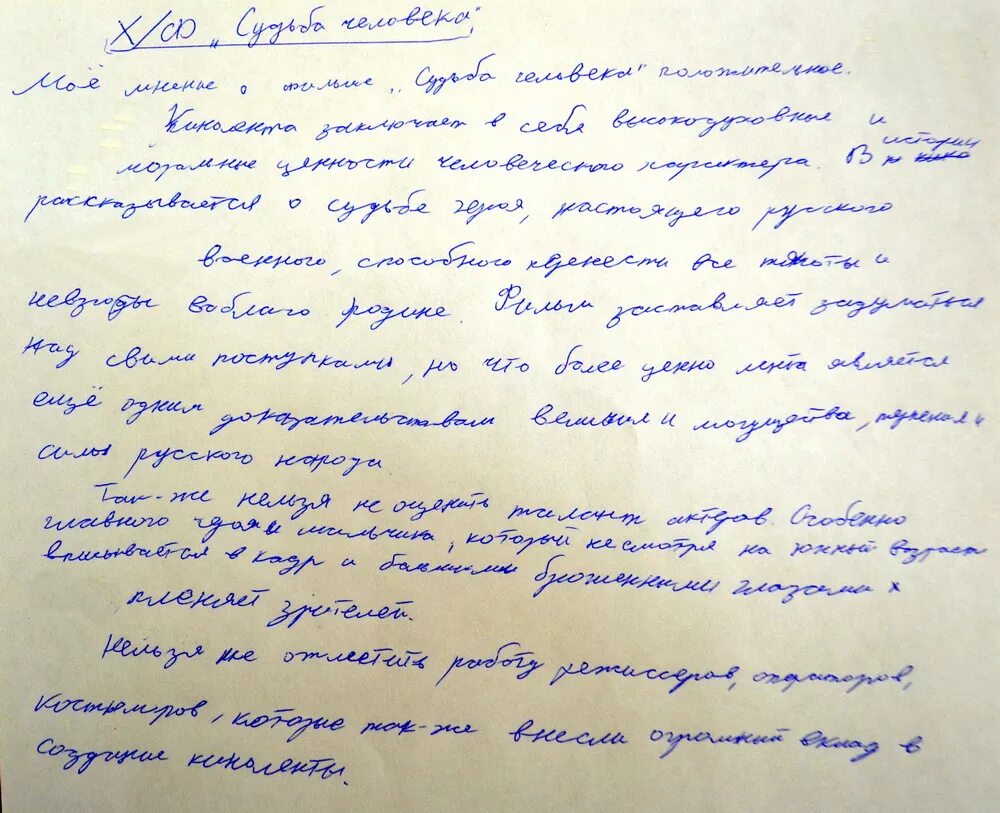 Х/Ф „Судьба человека"
Моё мнение о фильме „Судьба человека" положительное.
Кинолента заключает в себе высокодуховные и
моральные ценности человеческого характера. В истории
рассказывается о судьбе героя, настоящего русского
военного, способного перенести все тяготы и
невзгоды воблаго родине. Фильм заставляет задуматься
над своими поступками, но что более ценно лента является
ещё одним доказательством величия и могущества, терпения и
силы русского народа.
Так-же нельзя не оценить талант актёров. Особенно
главного героя и мальчика, который несмотря на юный возраст
вписывается в кадр и большими глазами
пленяет зрителей.
Нельзя не отметить работу режиссеров, операторов,
костюмеров, которые так-же внесли огромный вклад в
создание киноленты.